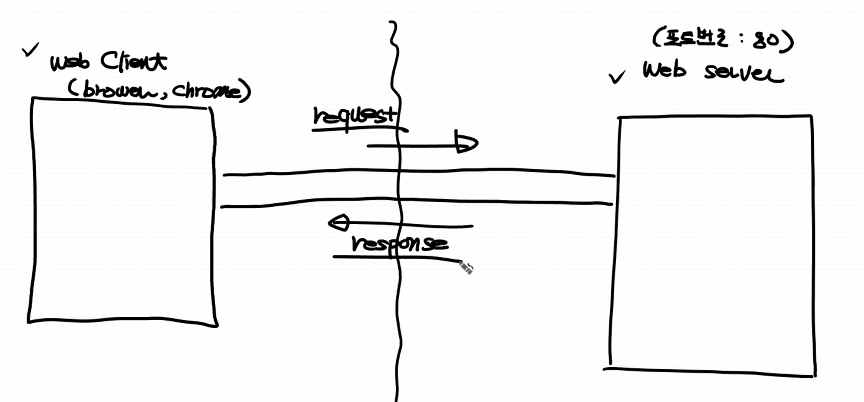 Web Client
(browen, chrome)
request
response
(포트번호 : 80)
Web server